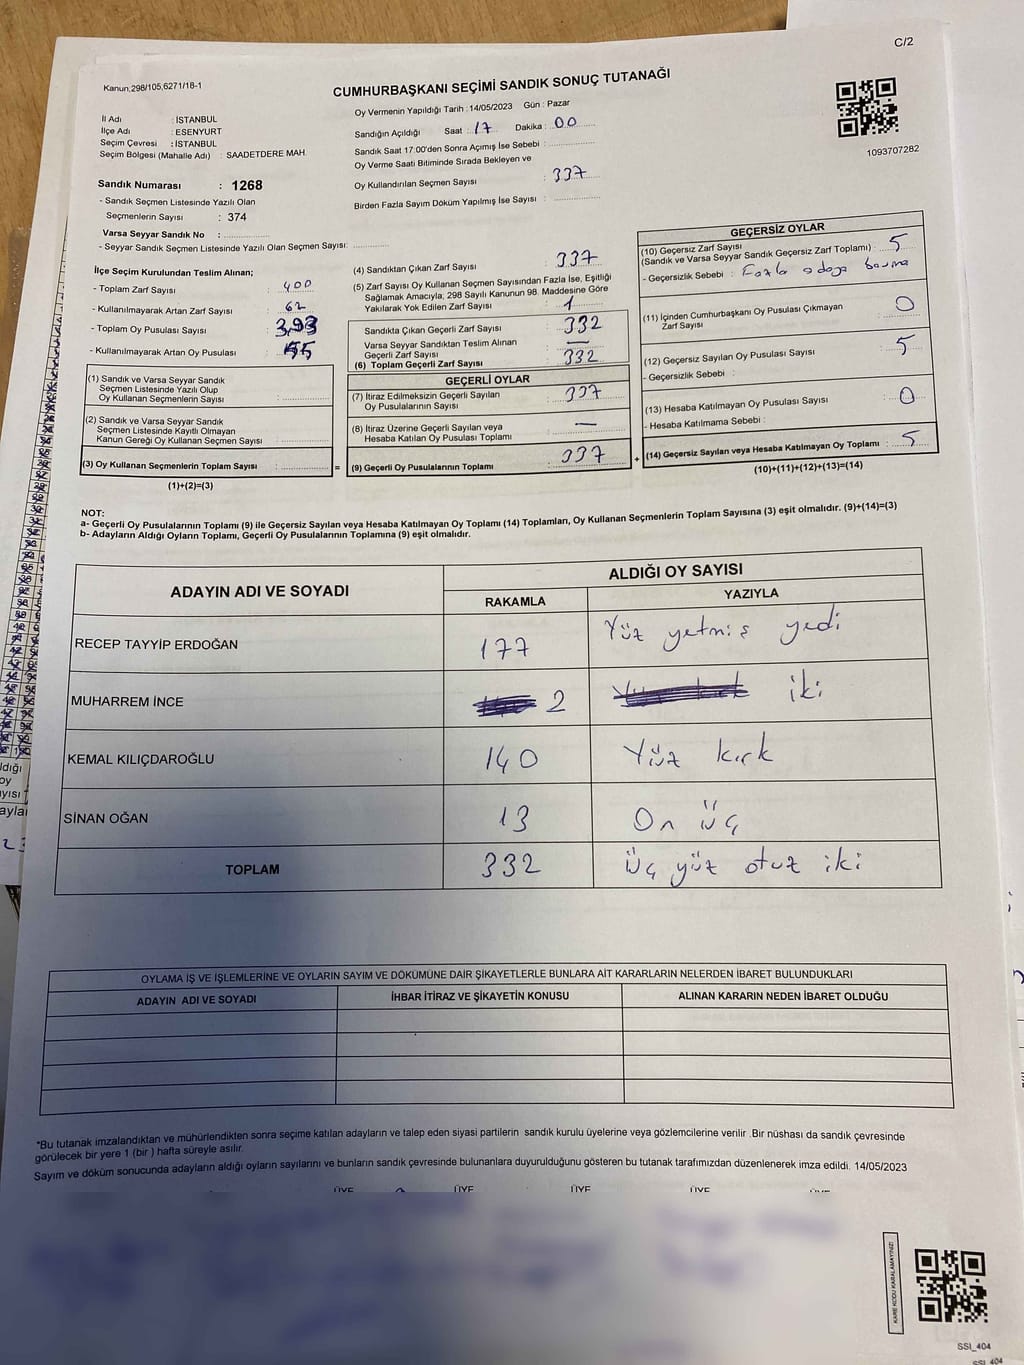 C/2
Kanun,298/105,6271/18-1
CUMHURBAŞKANI SEÇİMİ SANDIK SONUÇ TUTANAĞI
Oy Vermenin Yapıldığı Tarih : 14/05/2023 Gün : Pazar
İl Adı : İSTANBUL
İlçe Adı : ESENYURT
Seçim Çevresi : İSTANBUL
Seçim Bölgesi (Mahalle Adı) : SAADETDERE MAH.
Sandığın Açıldığı Saat : 17 Dakika : 00
Sandık Saat 17:00'den Sonra Açımış İse Sebebi :
Oy Verme Saati Bitiminde Sırada Bekleyen ve
Oy Kullandırılan Seçmen Sayısı : 337
Birden Fazla Sayım Döküm Yapılmış İse Sayısı :
1093707282
Sandık Numarası : 1268
- Sandık Seçmen Listesinde Yazılı Olan
Seçmenlerin Sayısı : 374
Varsa Seyyar Sandık No :
- Seyyar Sandık Seçmen Listesinde Yazılı Olan Seçmen Sayısı:
İlçe Seçim Kurulundan Teslim Alınan;
- Toplam Zarf Sayısı : 400
- Kullanılmayarak Artan Zarf Sayısı : 62
- Toplam Oy Pusulası Sayısı : 393
- Kullanılmayarak Artan Oy Pusulası : 55
(1) Sandık ve Varsa Seyyar Sandık
Seçmen Listesinde Yazılı Olup
Oy Kullanan Seçmenlerin Sayısı :
(2) Sandık ve Varsa Seyyar Sandık
Seçmen Listesinde Kayıtlı Olmayan
Kanun Gereği Oy Kullanan Seçmen Sayısı :
(3) Oy Kullanan Seçmenlerin Toplam Sayısı :
(1)+(2)=(3)
(4) Sandıktan Çıkan Zarf Sayısı : 337
(5) Zarf Sayısı Oy Kullanan Seçmen Sayısından Fazla İse, Eşitliği
Sağlamak Amacıyla, 298 Sayılı Kanunun 98. Maddesine Göre
Yakılarak Yok Edilen Zarf Sayısı : 1
Sandıkta Çıkan Geçerli Zarf Sayısı : 332
Varsa Seyyar Sandıktan Teslim Alınan
Geçerli Zarf Sayısı : —
(6) Toplam Geçerli Zarf Sayısı : 332
GEÇERLİ OYLAR
(7) İtiraz Edilmeksizin Geçerli Sayılan
Oy Pusulalarının Sayısı : 337
(8) İtiraz Üzerine Geçerli Sayılan veya
Hesaba Katılan Oy Pusulası Toplamı : —
= (9) Geçerli Oy Pusulalarının Toplamı : 337 +
GEÇERSİZ OYLAR
(10) Geçersiz Zarf Sayısı
(Sandık ve Varsa Seyyar Sandık Geçersiz Zarf Toplamı) : 5
- Geçersizlik Sebebi : Fazla adaya basma
(11) İçinden Cumhurbaşkanı Oy Pusulası Çıkmayan
Zarf Sayısı : 0
(12) Geçersiz Sayılan Oy Pusulası Sayısı : 5
- Geçersizlik Sebebi :
(13) Hesaba Katılmayan Oy Pusulası Sayısı : 0
- Hesaba Katılmama Sebebi :
(14) Geçersiz Sayılan veya Hesaba Katılmayan Oy Toplamı : 5
(10)+(11)+(12)+(13)=(14)
NOT:
a- Geçerli Oy Pusulalarının Toplamı (9) ile Geçersiz Sayılan veya Hesaba Katılmayan Oy Toplamı (14) Toplamları, Oy Kullanan Seçmenlerin Toplam Sayısına (3) eşit olmalıdır. (9)+(14)=(3)
b- Adayların Aldığı Oyların Toplamı, Geçerli Oy Pusulalarının Toplamına (9) eşit olmalıdır.
ADAYIN ADI VE SOYADI
ALDIĞI OY SAYISI
RAKAMLA YAZIYLA
RECEP TAYYİP ERDOĞAN 177 Yüz yetmiş yedi
MUHARREM İNCE 2 iki
KEMAL KILIÇDAROĞLU 140 Yüz kırk
SİNAN OĞAN 13 On üç
TOPLAM 332 üç yüz otuz iki
OYLAMA İŞ VE İŞLEMLERİNE VE OYLARIN SAYIM VE DÖKÜMÜNE DAİR ŞİKAYETLERLE BUNLARA AİT KARARLARIN NELERDEN İBARET BULUNDUKLARI
ADAYIN ADI VE SOYADI İHBAR İTİRAZ VE ŞİKAYETİN KONUSU ALINAN KARARIN NEDEN İBARET OLDUĞU
*Bu tutanak imzalandıktan ve mühürlendikten sonra seçime katılan adayların ve talep eden siyasi partilerin sandık kurulu üyelerine veya gözlemcilerine verilir .Bir nüshası da sandık çevresinde
görülecek bir yere 1 (bir ) hafta süreyle asılır.
Sayım ve döküm sonucunda adayların aldığı oyların sayılarını ve bunların sandık çevresinde bulunanlara duyurulduğunu gösteren bu tutanak tarafımızdan düzenlenerek imza edildi. 14/05/2023
ÜYE ÜYE ÜYE ÜYE ÜYE
KARE KODU KARALAMAYINIZ!
SSİ_404